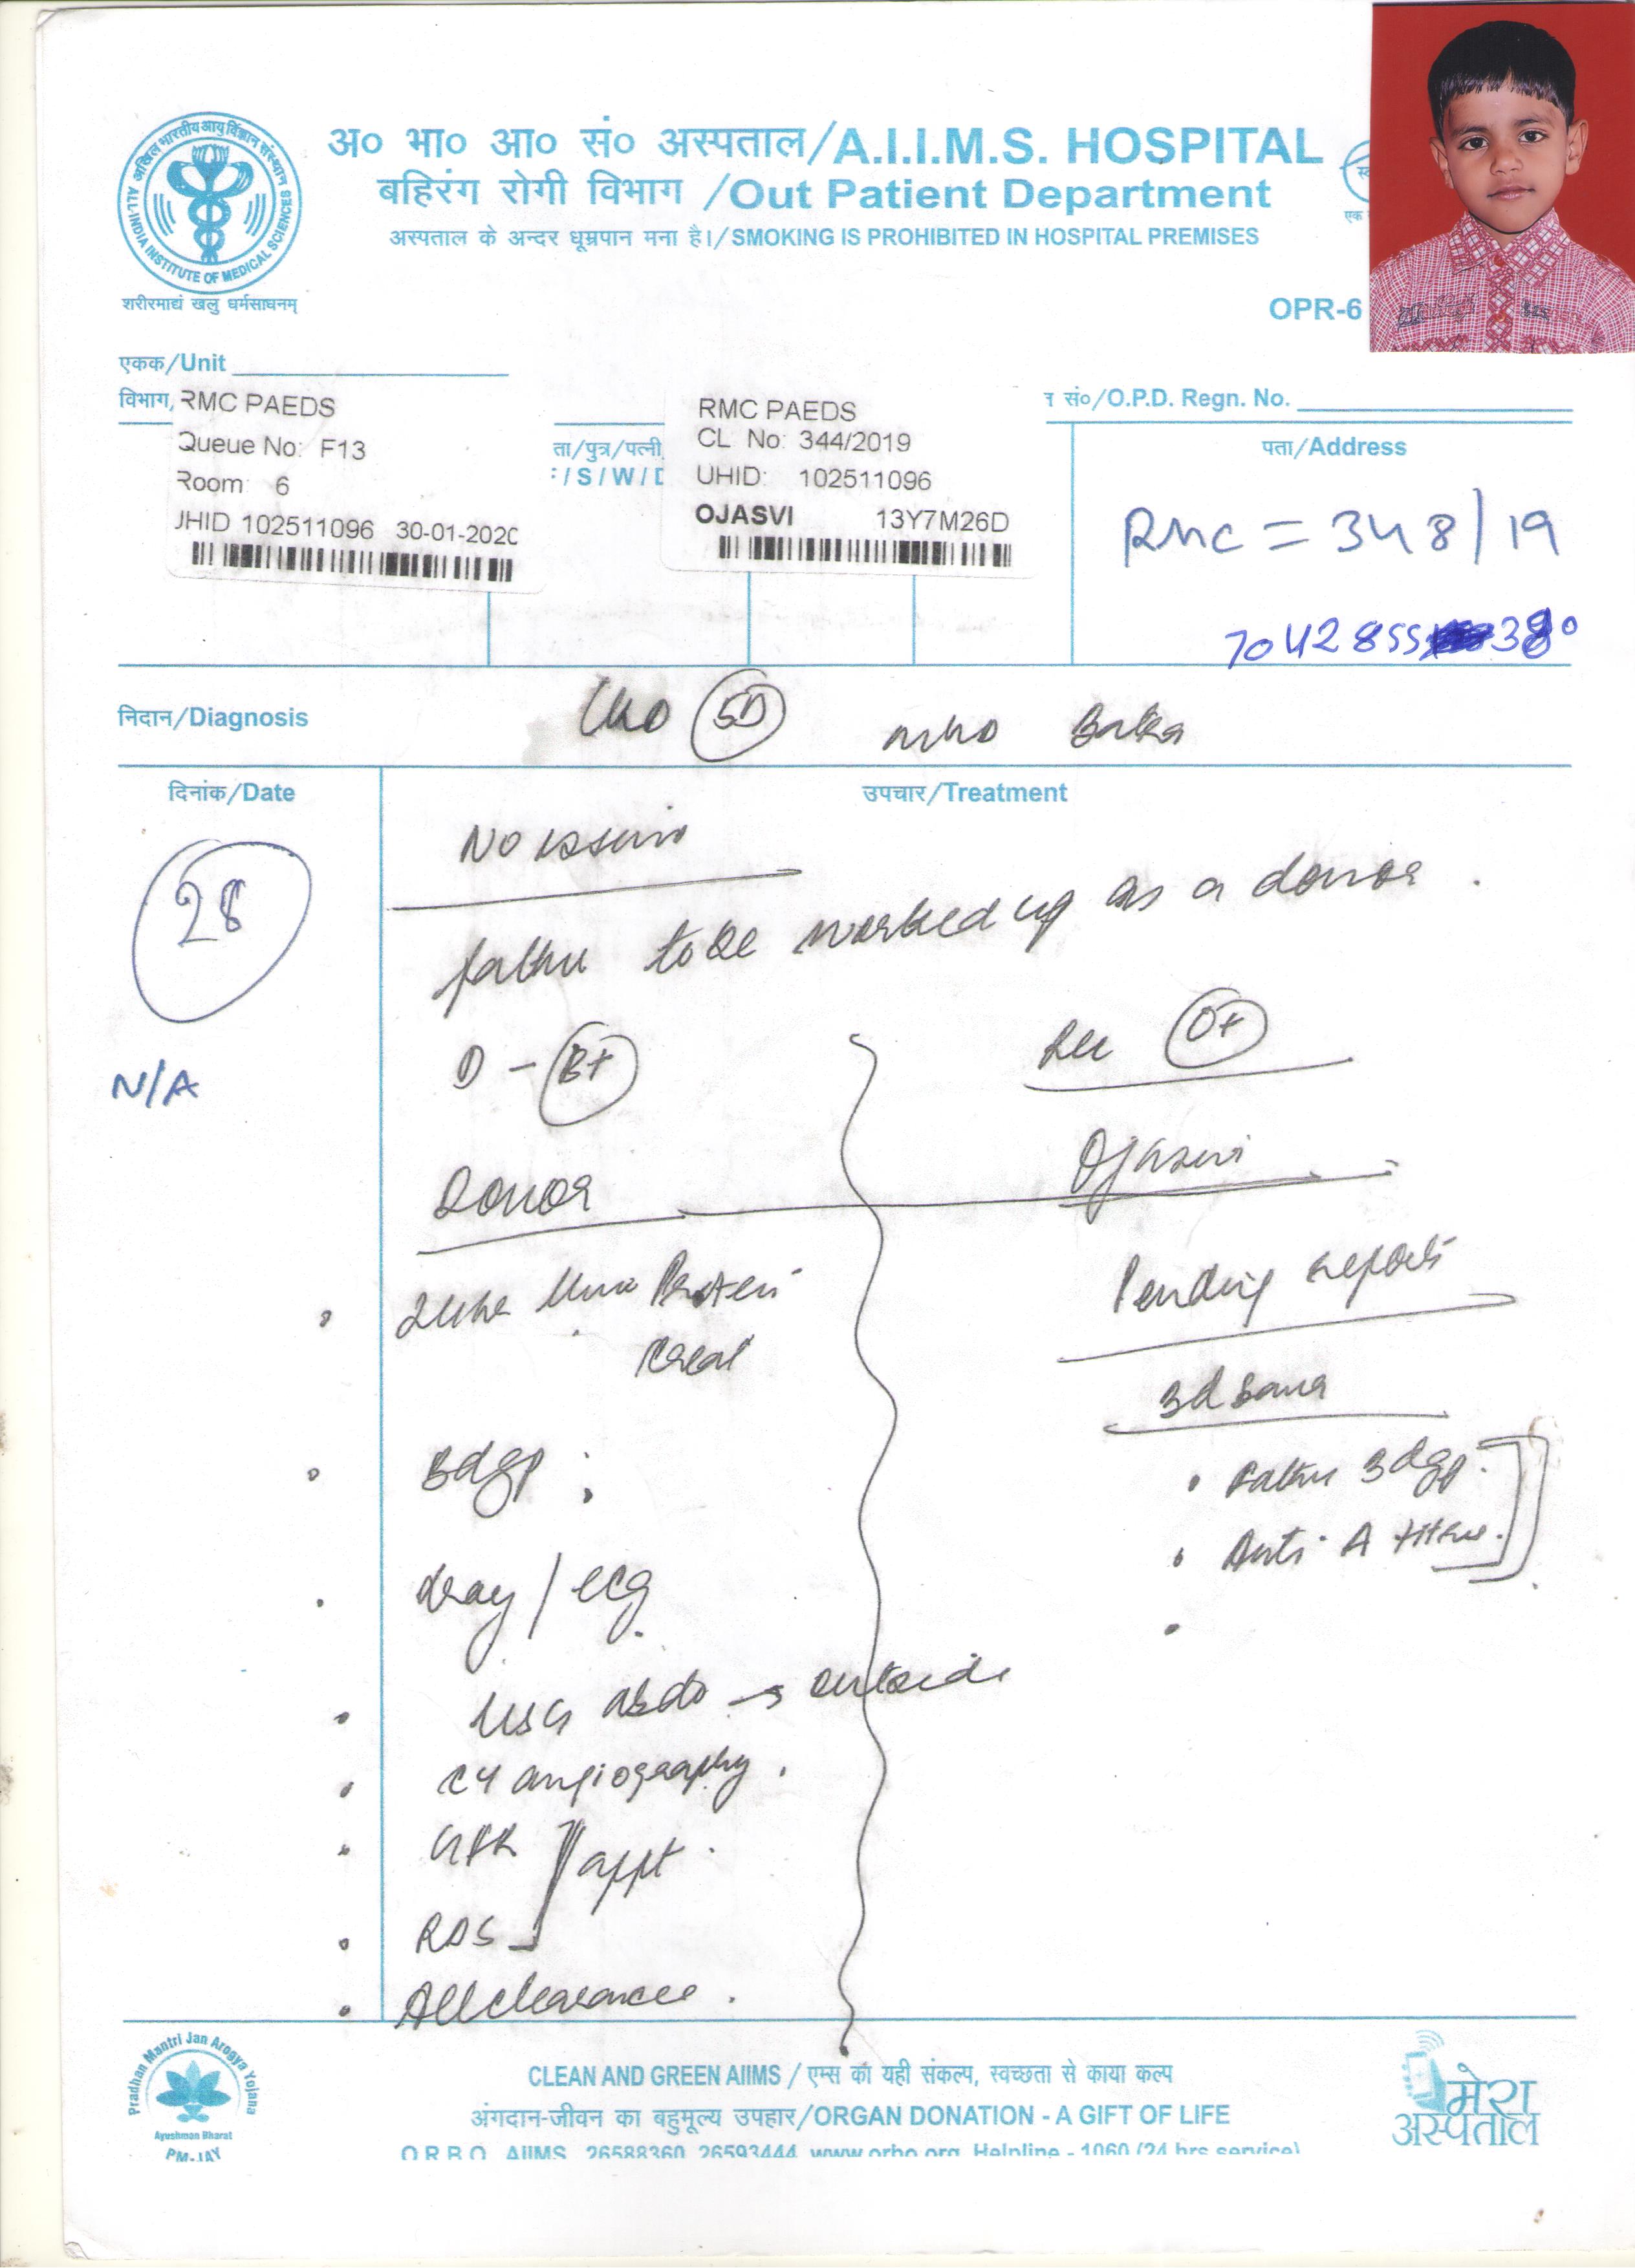 अ० भा० आ० सं० अस्पताल/A.I.I.M.S. HOSPITAL
बहिरंग रोगी विभाग /Out Patient Department
अस्पताल के अन्दर धूम्रपान मना है।/SMOKING IS PROHIBITED IN HOSPITAL PREMISES
अखिल भारतीय आयुर्विज्ञान संस्थान
ALL-INDIA INSTITUTE OF MEDICAL SCIENCES
शरीरमाद्यं खलु धर्मसाधनम्
एक
OPR-6
एकक/Unit
विभाग
RMC PAEDS
Queue No: F13
Room: 6
JHID 102511096 30-01-2020
ता/पुत्र/पत्नी
/S/W/D
RMC PAEDS
CL No: 344/2019
UHID: 102511096
OJASVI 13Y7M26D
सं०/O.P.D. Regn. No.
पता/Address
RMC = 348/19
निदान/Diagnosis
5D
दिनांक/Date
उपचार/Treatment
28
N/A
No issues
father to be worked up as a donor.
D - B+
Rec O+
Donor
Ojasvi
24hr Urine Protein
Creat
Pending reports
3d Sona
Bdgp
Father Bdgp.
Anti A titre.
Xray / ECG
USG Abdo → outside
CT angiography.
GFR
appt.
RDS
All clearances.
Pradhan Mantri Jan Arogya Yojana
Ayushman Bharat
PM-JAY
CLEAN AND GREEN AIIMS / एम्स का यही संकल्प, स्वच्छता से काया कल्प
अंगदान-जीवन का बहुमूल्य उपहार/ORGAN DONATION - A GIFT OF LIFE
O.R.B.O. AIIMS, 26588360, 26593444, www.orbo.org, Helpline - 1060 (24 hrs service)
मेरा
अस्पताल